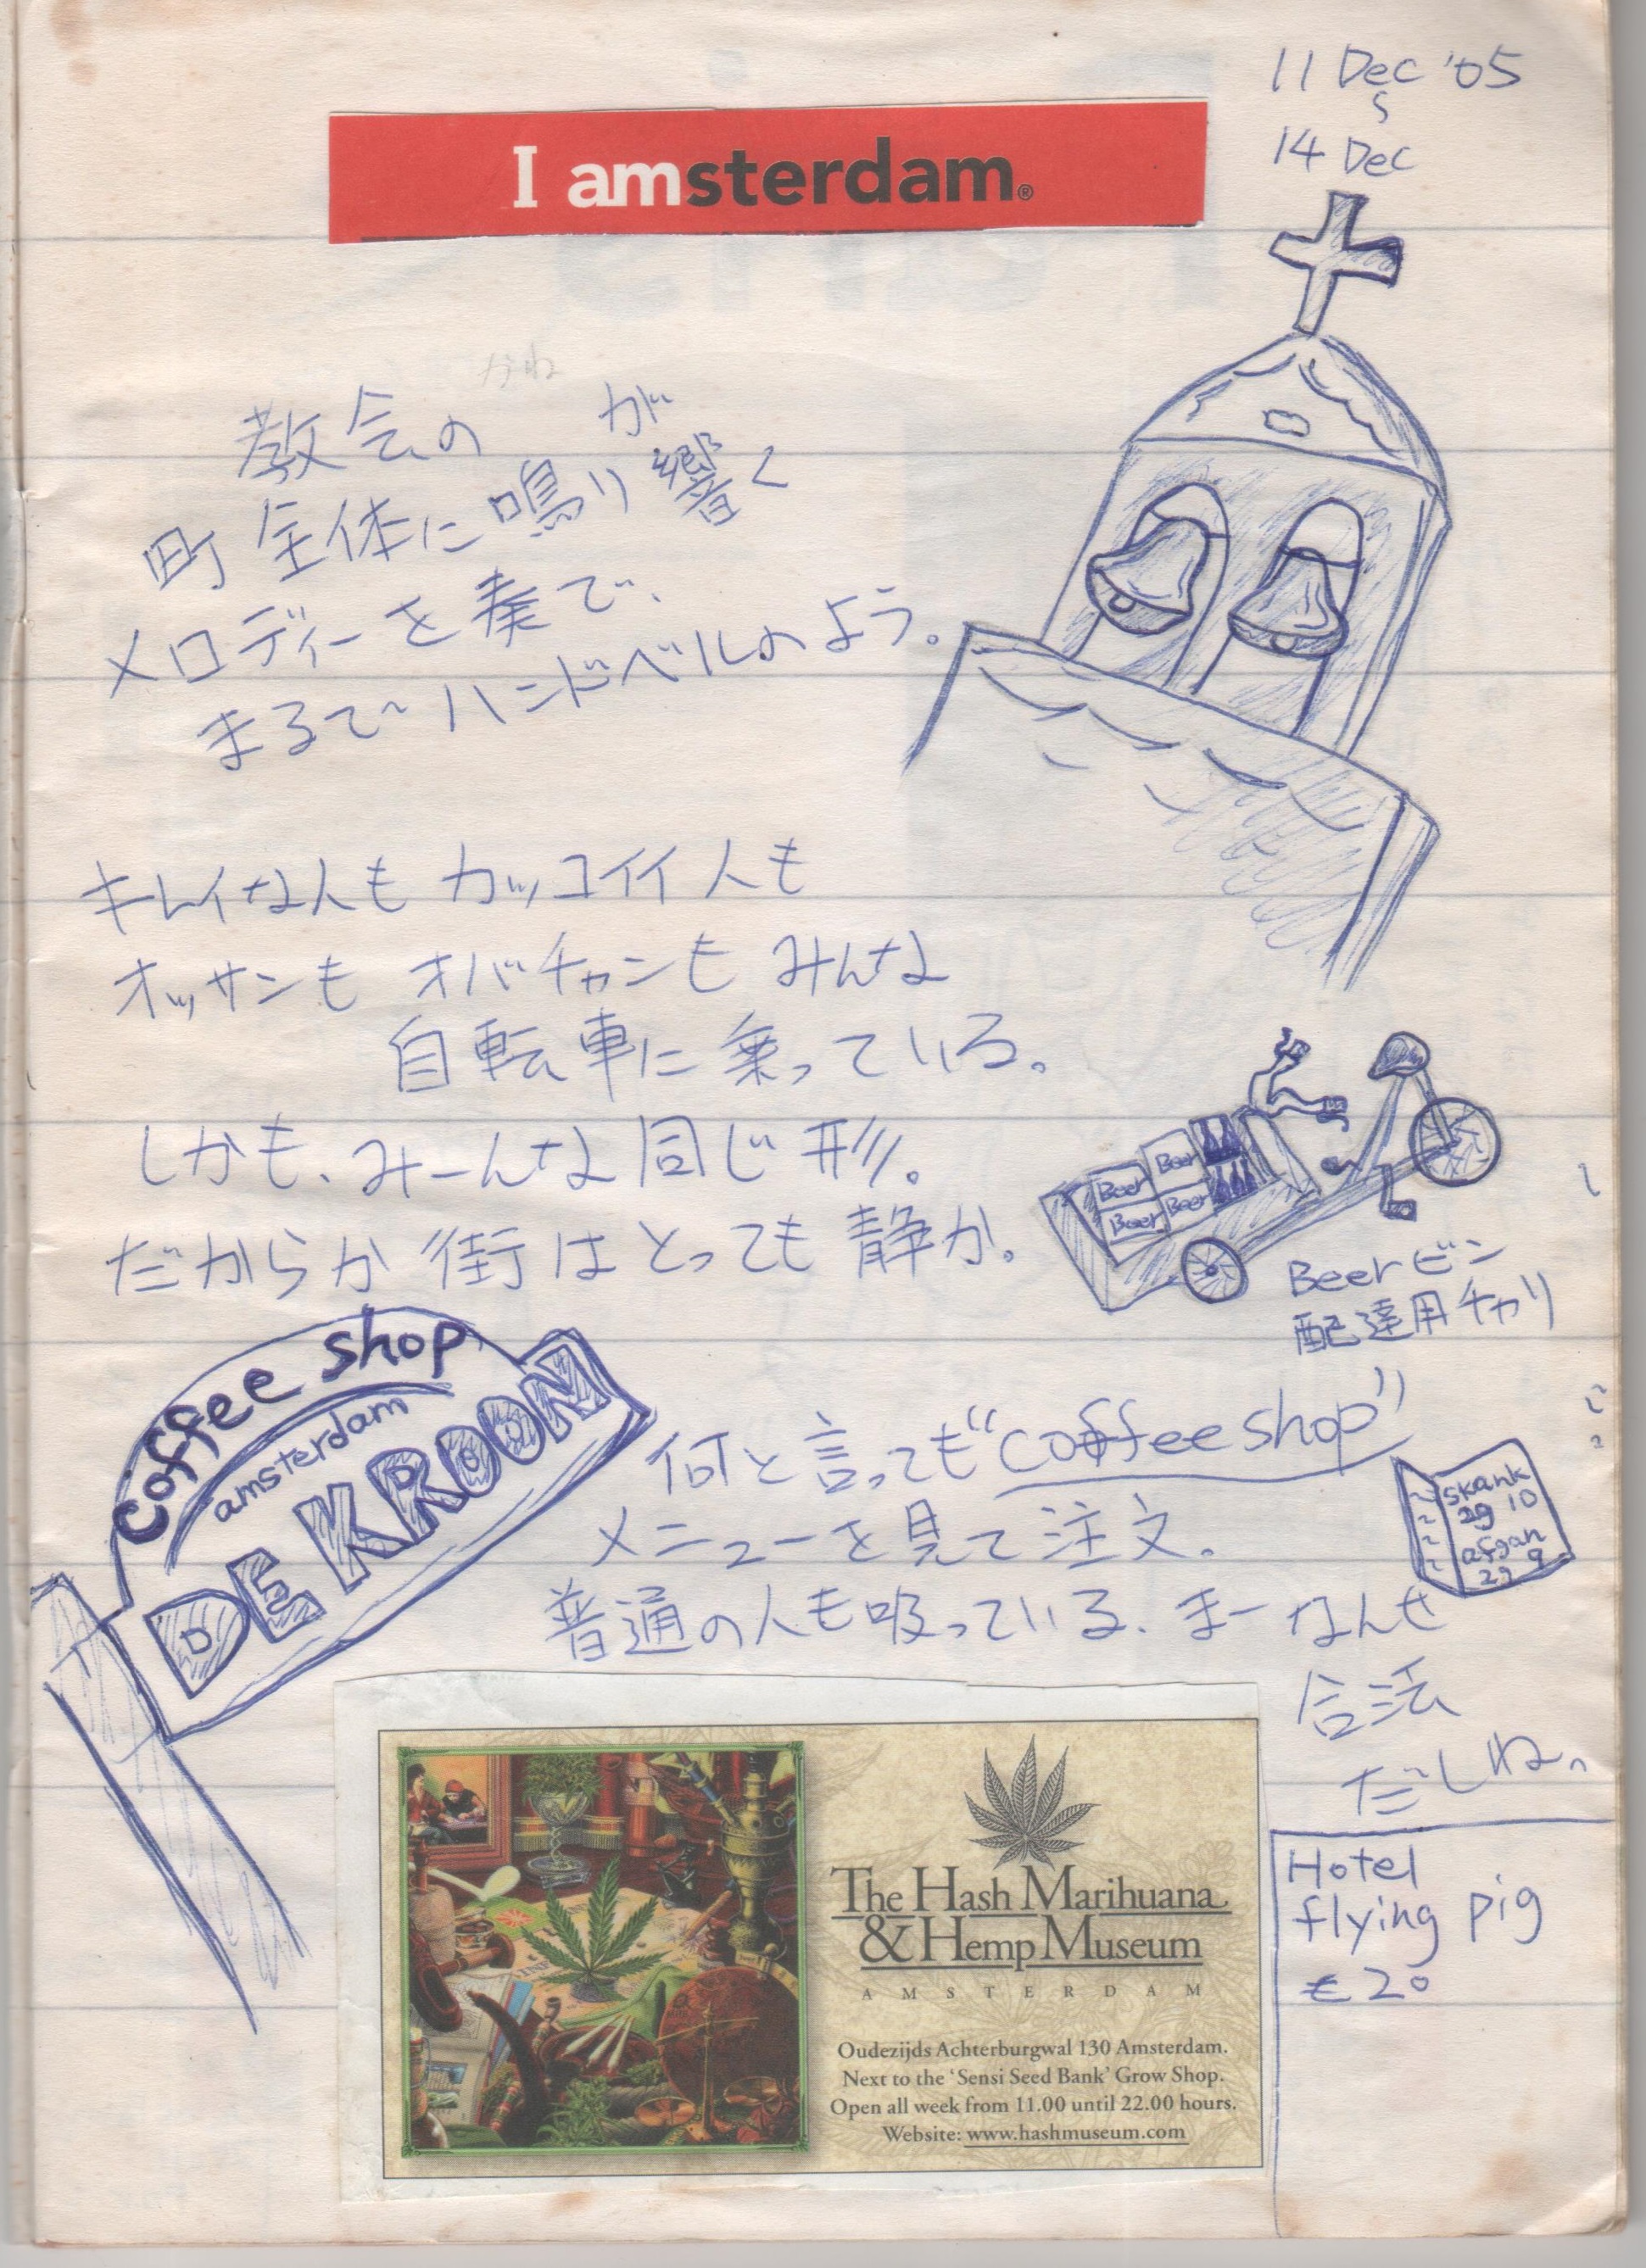 11 Dec '05
〜
14 Dec
I amsterdam®
かね
教会の が
町全体に鳴り響く
メロディーを奏で、
まるでハンドベルのよう。
キレイな人もカッコイイ人も
オッサンも オバチャンも みんな
自転車に乗っている。
しかも、みーんな同じ形。
だからか 街はとっても静か。
Beer
Beer
Beer
Beer
Beerビン
配達用チャリ
coffee shop
amsterdam
DE KROON
何と言っても“coffee shop”
メニューを見て注文。
普通の人も吸っている、まーなんせ
合法
だしね、
skank
2g 10
afgan
2g 9
The Hash Marihuana
& Hemp Museum
AMSTERDAM
Oudezijds Achterburgwal 130 Amsterdam.
Next to the 'Sensi Seed Bank' Grow Shop.
Open all week from 11.00 until 22.00 hours.
Website: www.hashmuseum.com
Hotel
flying pig
€20